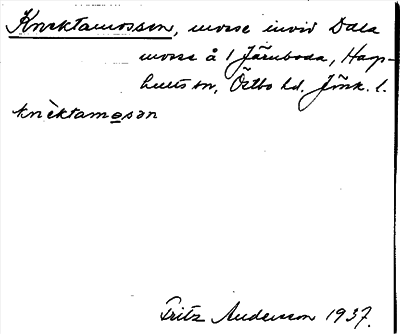 Knektamossen, mosse invid Dala
mosse å 1 Järnboda, Hag-
hults sn, Östbo hd. Jönk. l.
knèktamosən
Fritz Andersson 1937.